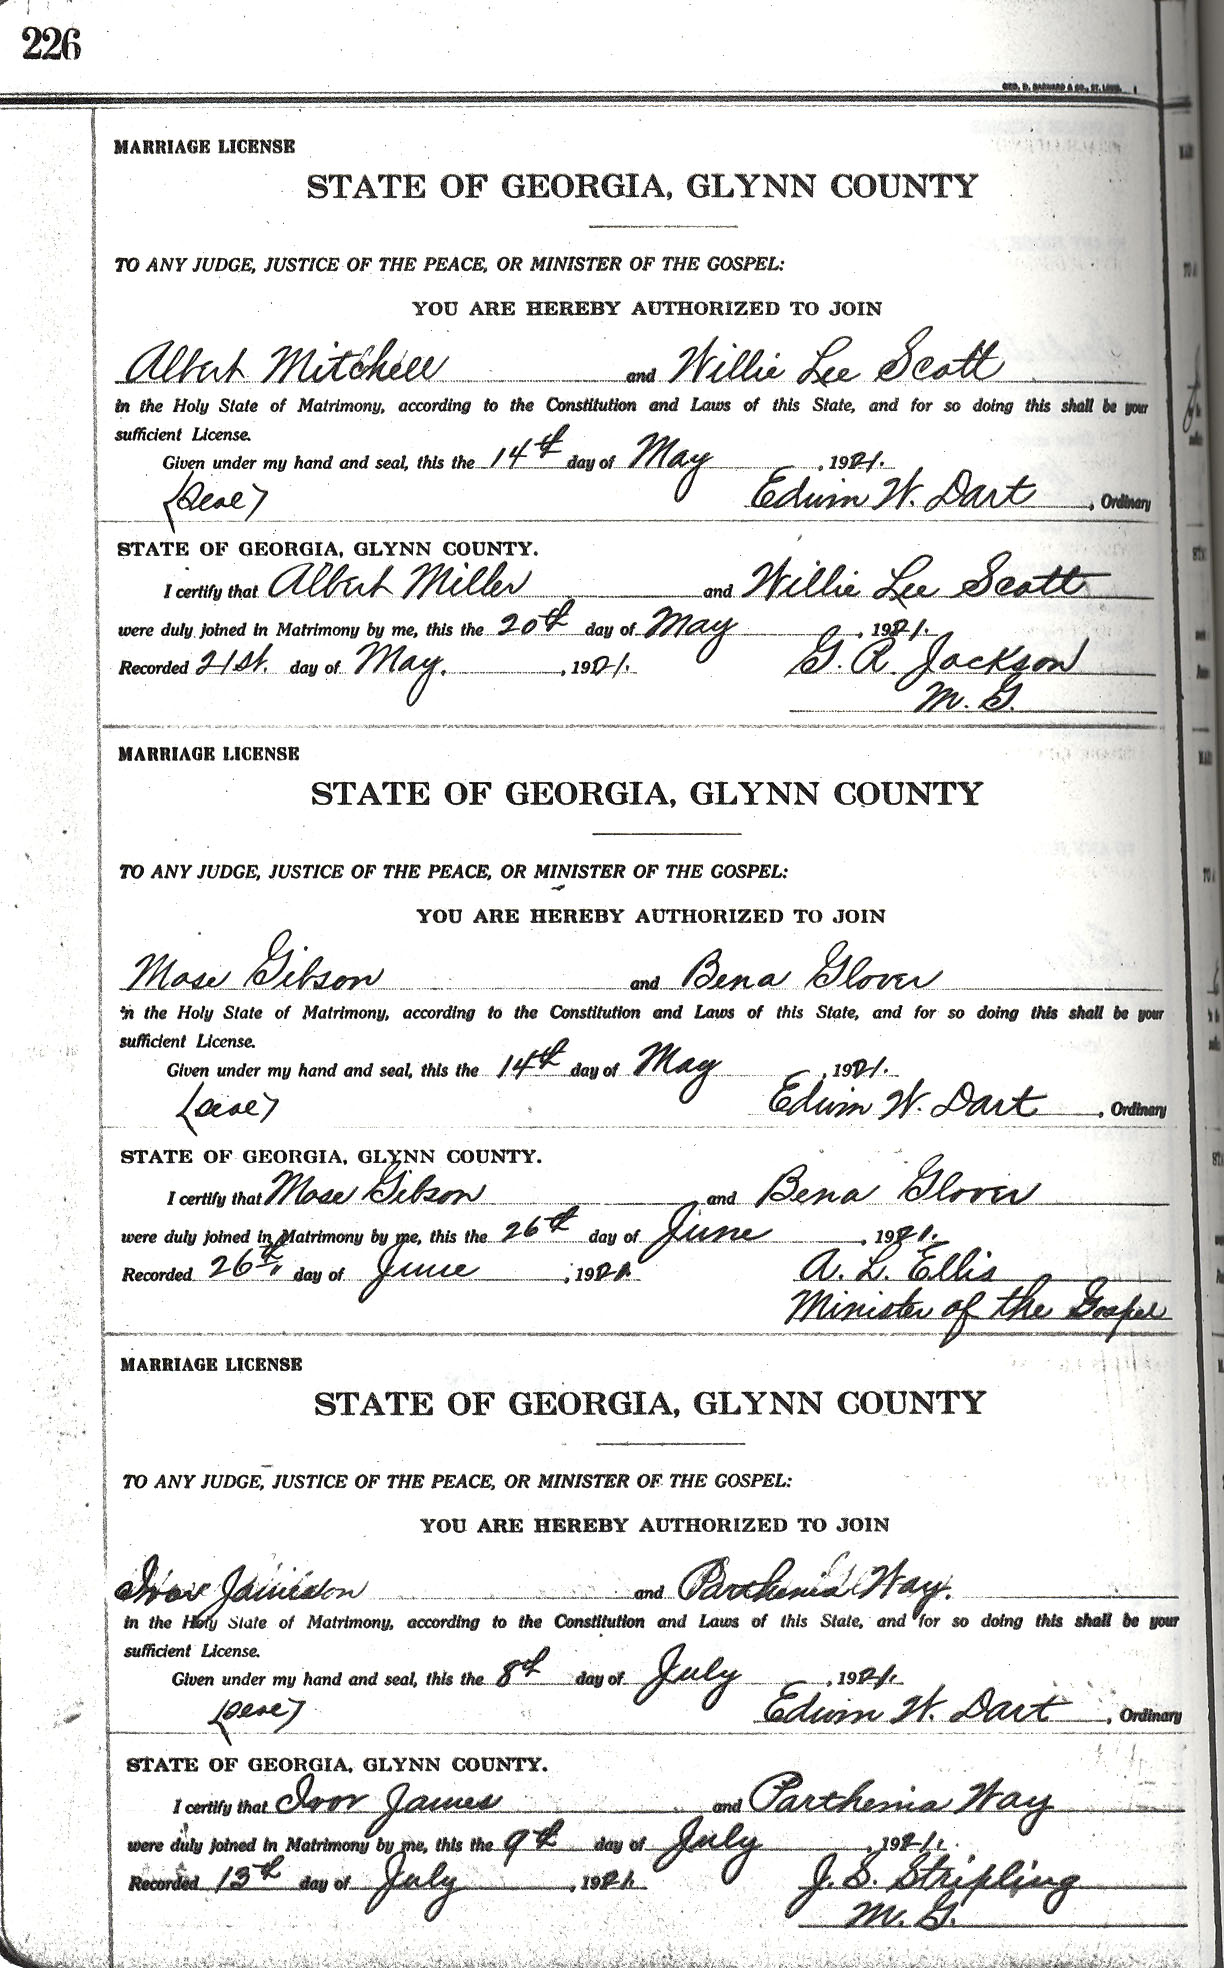 226
GEO. D. BARNARD & CO., ST. LOUIS.
MARRIAGE LICENSE
STATE OF GEORGIA, GLYNN COUNTY
TO ANY JUDGE, JUSTICE OF THE PEACE, OR MINISTER OF THE GOSPEL:
YOU ARE HEREBY AUTHORIZED TO JOIN
Albert Mitchell and Willie Lee Scott
in the Holy State of Matrimony, according to the Constitution and Laws of this State, and for so doing this shall be your
sufficient License.
Given under my hand and seal, this the 14th day of May, 1921.
(Seal) Edwin W. Dart, Ordinary
STATE OF GEORGIA, GLYNN COUNTY.
I certify that Albert Miller and Willie Lee Scott
were duly joined in Matrimony by me, this the 20th day of May, 1921.
Recorded 21st. day of May., 1921. G. R. Jackson
M. G.
MARRIAGE LICENSE
STATE OF GEORGIA, GLYNN COUNTY
TO ANY JUDGE, JUSTICE OF THE PEACE, OR MINISTER OF THE GOSPEL:
YOU ARE HEREBY AUTHORIZED TO JOIN
Mose Gibson and Bena Glover
in the Holy State of Matrimony, according to the Constitution and Laws of this State, and for so doing this shall be your
sufficient License.
Given under my hand and seal, this the 14th day of May, 1921.
(Seal) Edwin W. Dart, Ordinary
STATE OF GEORGIA, GLYNN COUNTY.
I certify that Mose Gibson and Bena Glover
were duly joined in Matrimony by me, this the 26th day of June, 1921.
Recorded 26th, day of June, 1921. A. L. Ellis
Minister of the Gospel
MARRIAGE LICENSE
STATE OF GEORGIA, GLYNN COUNTY
TO ANY JUDGE, JUSTICE OF THE PEACE, OR MINISTER OF THE GOSPEL:
YOU ARE HEREBY AUTHORIZED TO JOIN
Ivor Jamison and Parthenia Way.
in the Holy State of Matrimony, according to the Constitution and Laws of this State, and for so doing this shall be your
sufficient License.
Given under my hand and seal, this the 8th day of July, 1921.
(Seal) Edwin W. Dart, Ordinary
STATE OF GEORGIA, GLYNN COUNTY.
I certify that Ivor James and Parthenia Way
were duly joined in Matrimony by me, this the 9th day of July, 1921.
Recorded 13th day of July, 1921. J. S. Stripling
M. G.